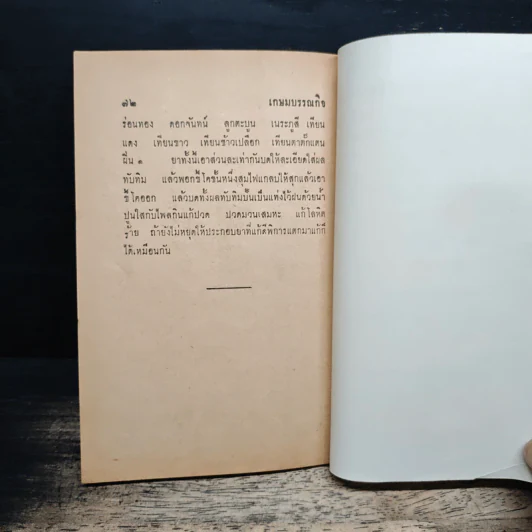 ๗๒ เกษมบรรณกิจ
ร่อนทอง ดอกจันทน์ ลูกตะบูน เนระภูสี เทียน
แดง เทียนขาว เทียนข้าวเปลือก เทียนตาตั๊กแตน
ฝิ่น ๑ ยาทั้งนี้เอาส่วนละเท่ากันบดให้ละเอียดใส่ผล
ทับทิม แล้วพอกขี้โคขั้นหนึ่งสุมไฟแกลบให้สุกแล้วเอา
ขี้โคออก แล้วบดทั้งผลทับทิมปั้นเป็นแท่งไว้ฝนด้วยน้ำ
ปูนใสกับไพลกินแก้ปวด ปวดมวนเสมหะ แก้โลหิต
ร้าย ถ้ายังไม่หยุดให้ประกอบยาที่แก้ดีพิการแตกมาแก้ก็
ได้เหมือนกัน